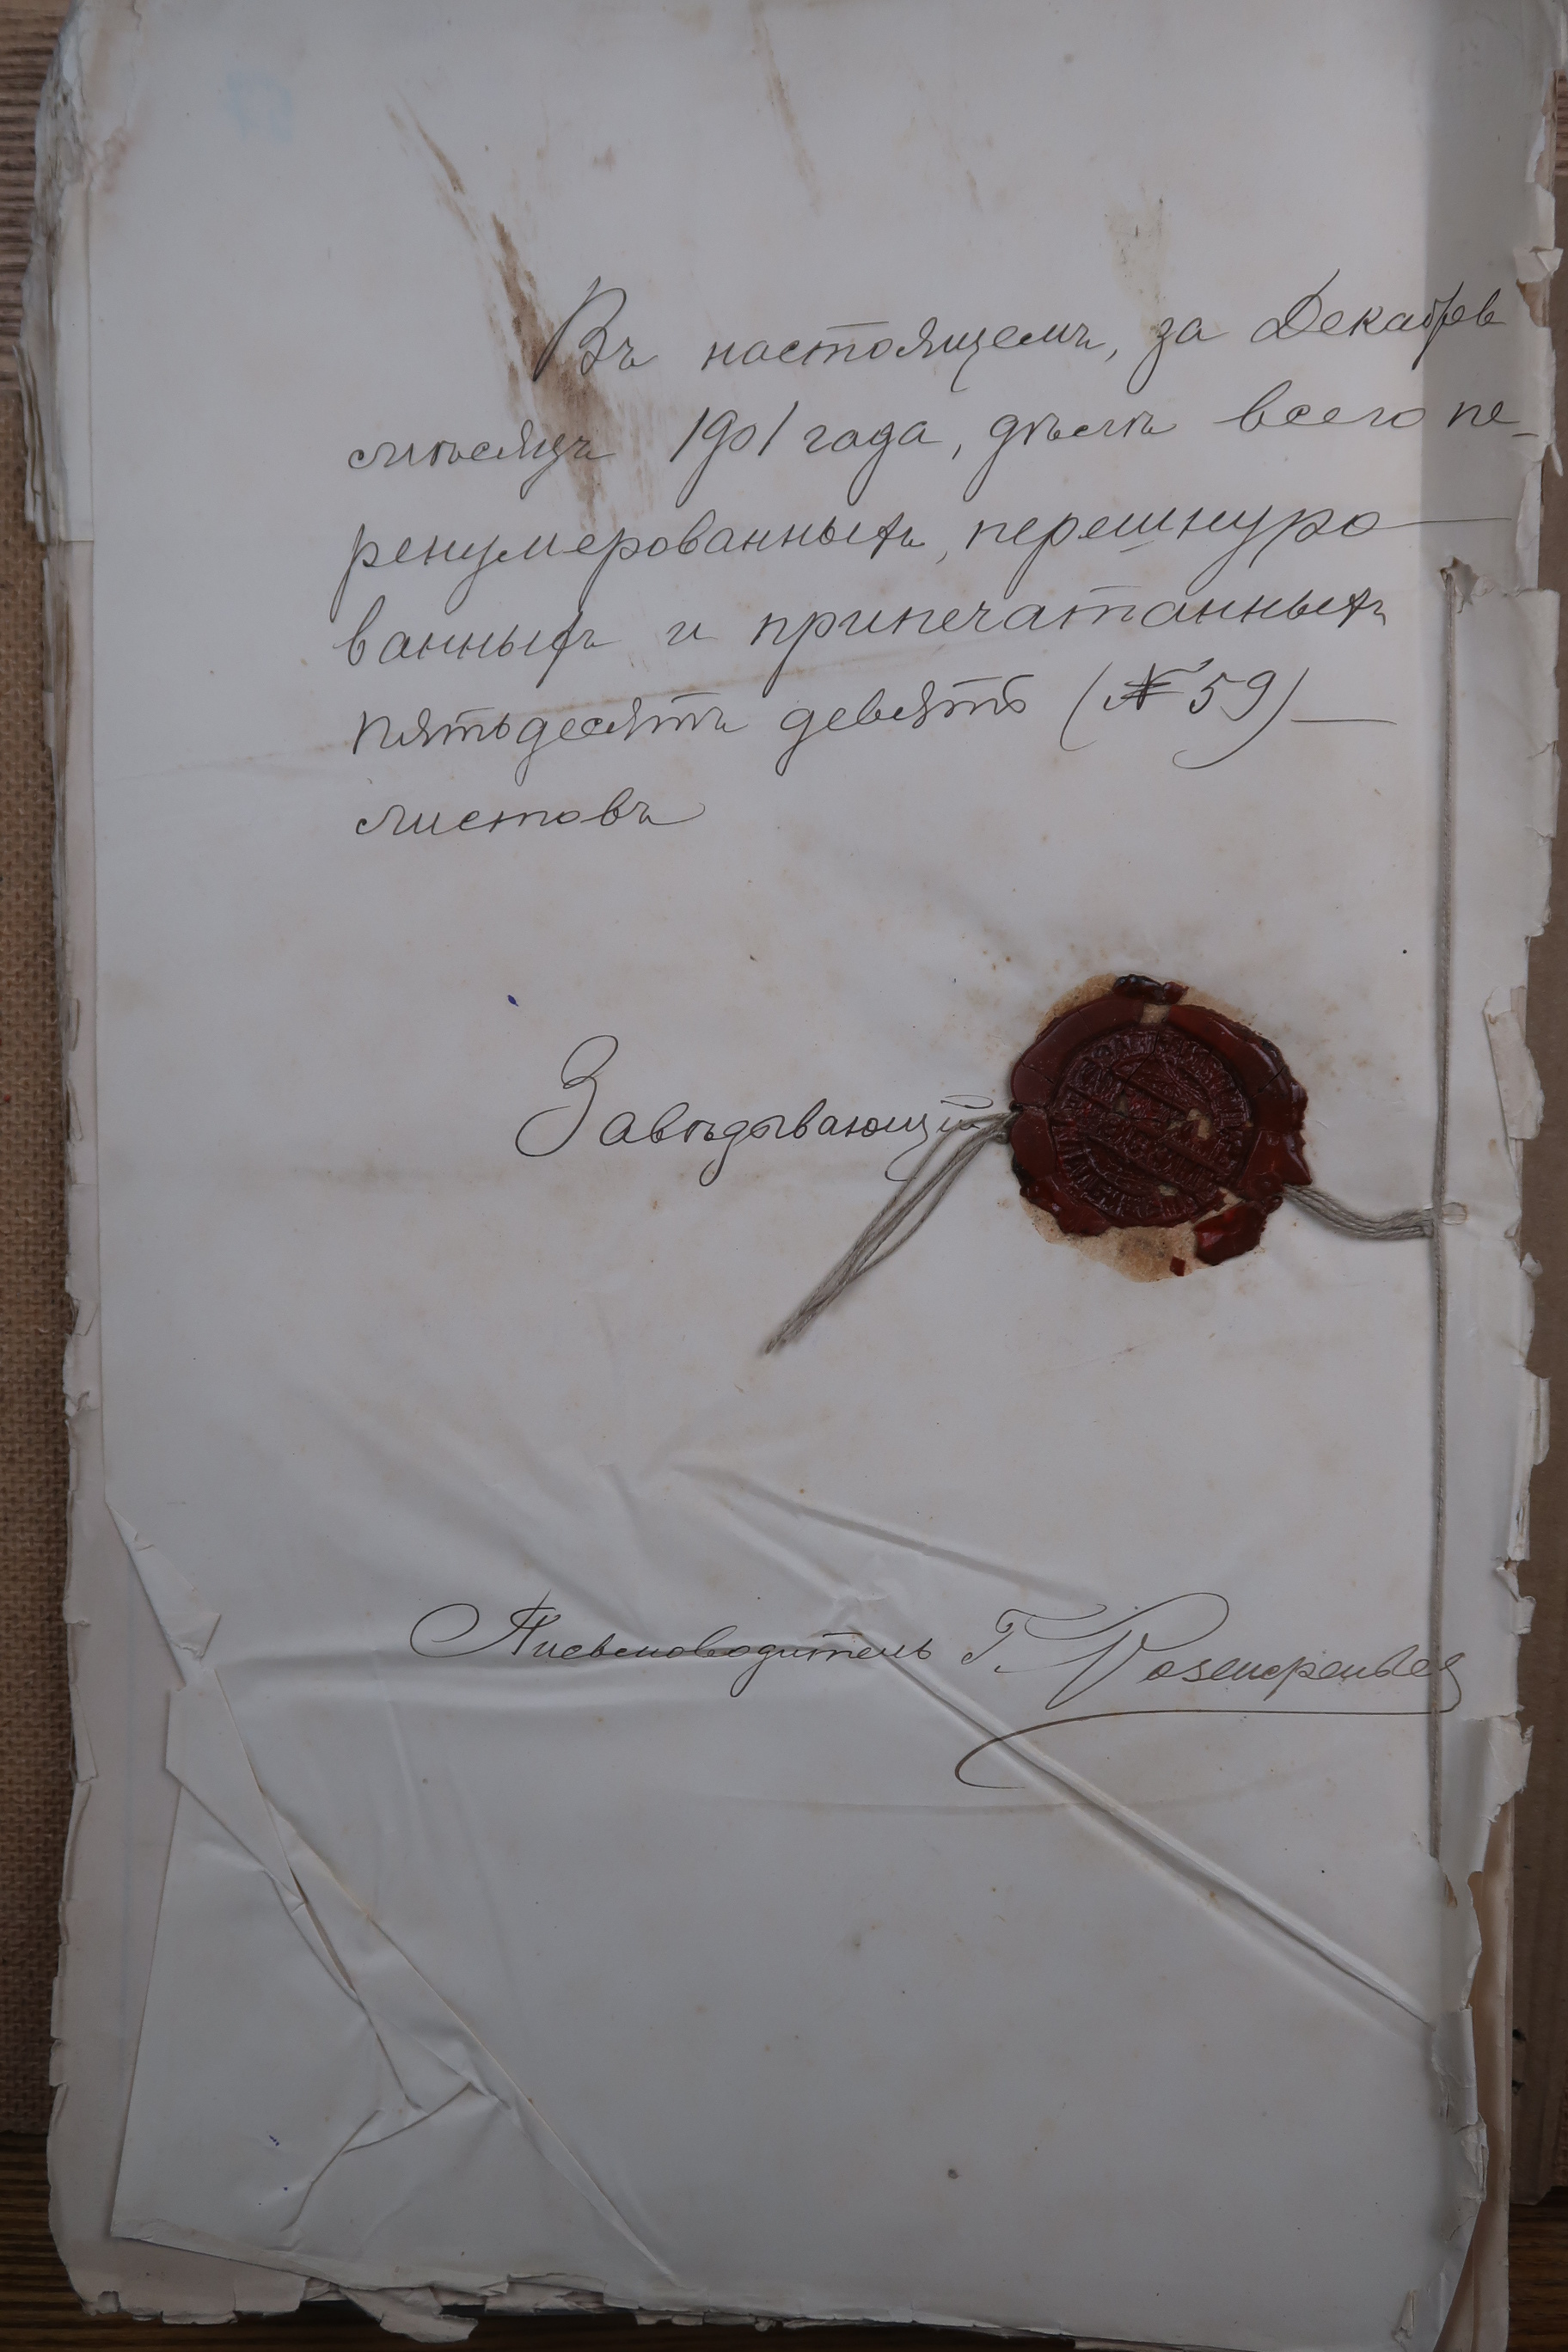 Въ настоящемъ, за Декабрь
мѣсяцъ 1901 года, дѣлѣ всего пе-
ренумерованныхъ, перешнуро-
ванныхъ и припечатанныхъ
пятьдесятъ девять (№ 59) —
листовъ
Завѣдывающій
Письмоводитель Г.